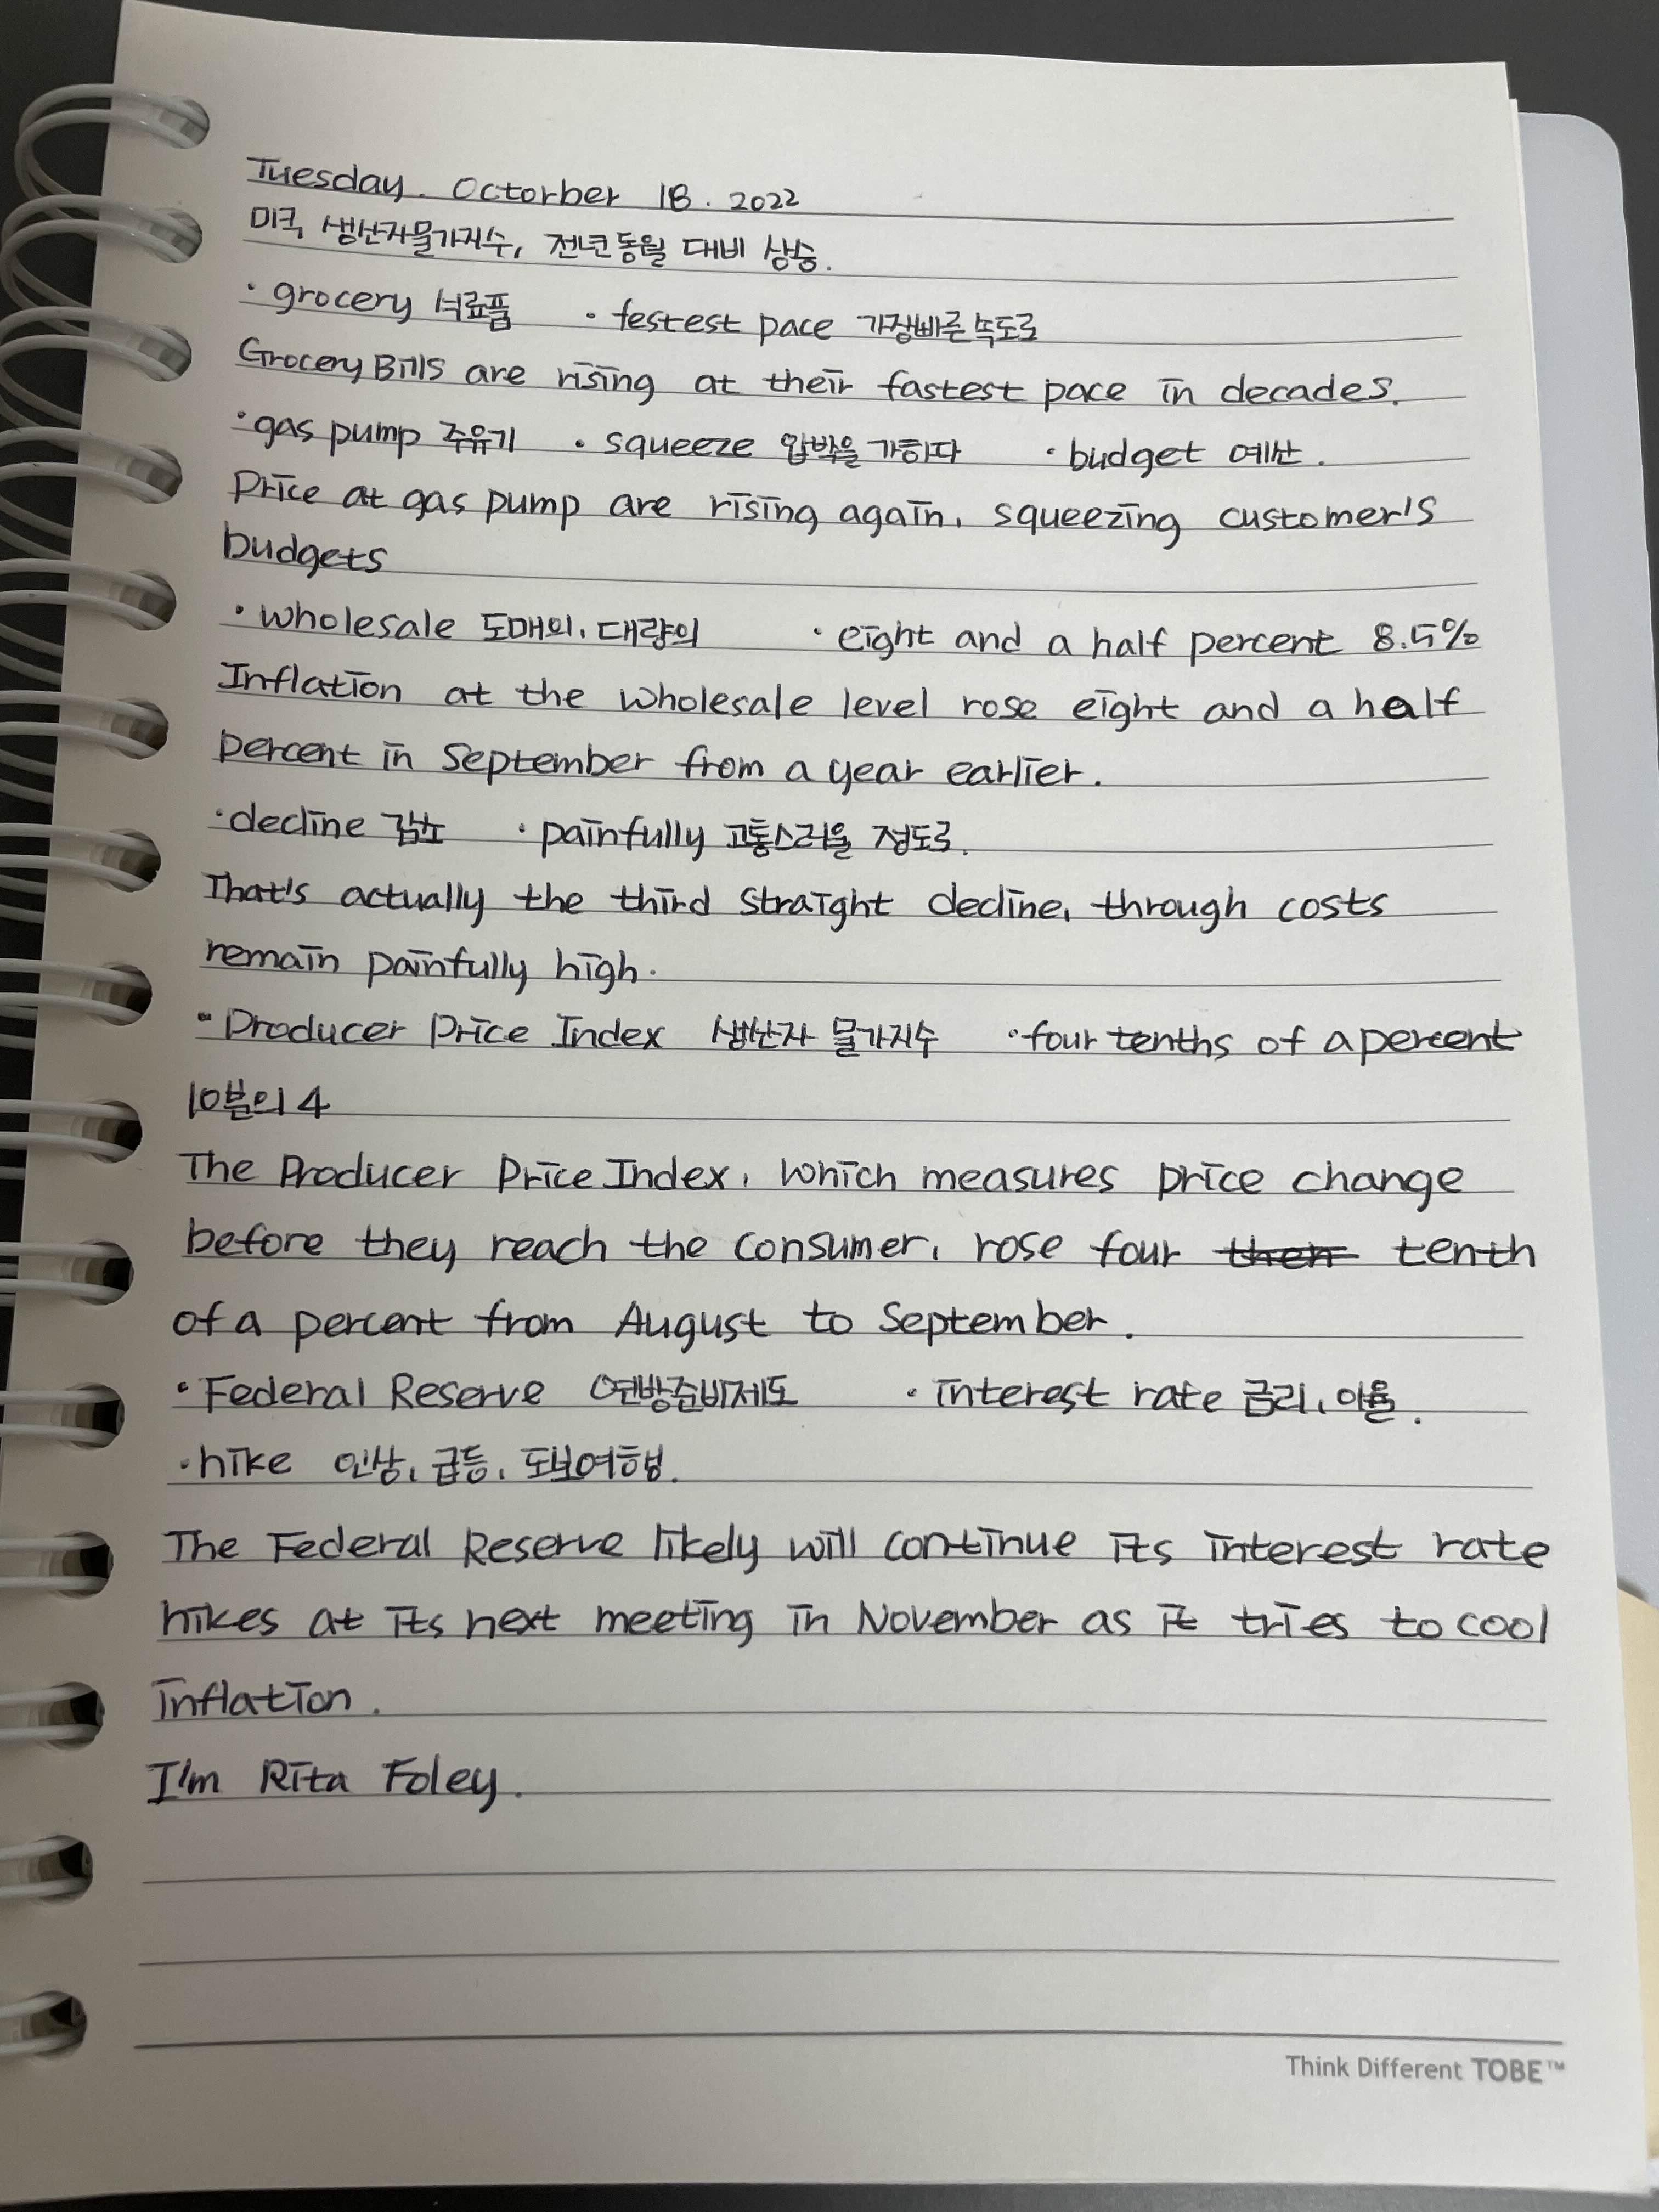 Tuesday. Octorber 18. 2022
미국 생산자물가지수, 전년동월 대비 상승.
· grocery 식료품 · festest pace 가장빠른 속도로
Grocery Bills are rising at their fastest pace in decades.
· gas pump 주유기 · squeeze 압박을 가하다 · budget 예산.
Price at gas pump are rising again, squeezing customer's
budgets
· wholesale 도매의, 대량의 · eight and a half percent 8.5%
Inflation at the wholesale level rose eight and a half
percent in September from a year earlier.
· decline 감소 · painfully 고통스러울 정도로.
That's actually the third straight decline, through costs
remain painfully high.
· Producer Price Index 생산자 물가지수 · four tenths of a percent
10분의 4
The Producer Price Index, which measures price change
before they reach the consumer, rose four then tenth
of a percent from August to September.
· Federal Reserve 연방준비제도 · interest rate 금리, 이율.
· hike 인상, 급등, 도보여행.
The Federal Reserve likely will continue its interest rate
hikes at its next meeting in November as it tries to cool
inflation.
I'm Rita Foley.
Think Different TOBE™